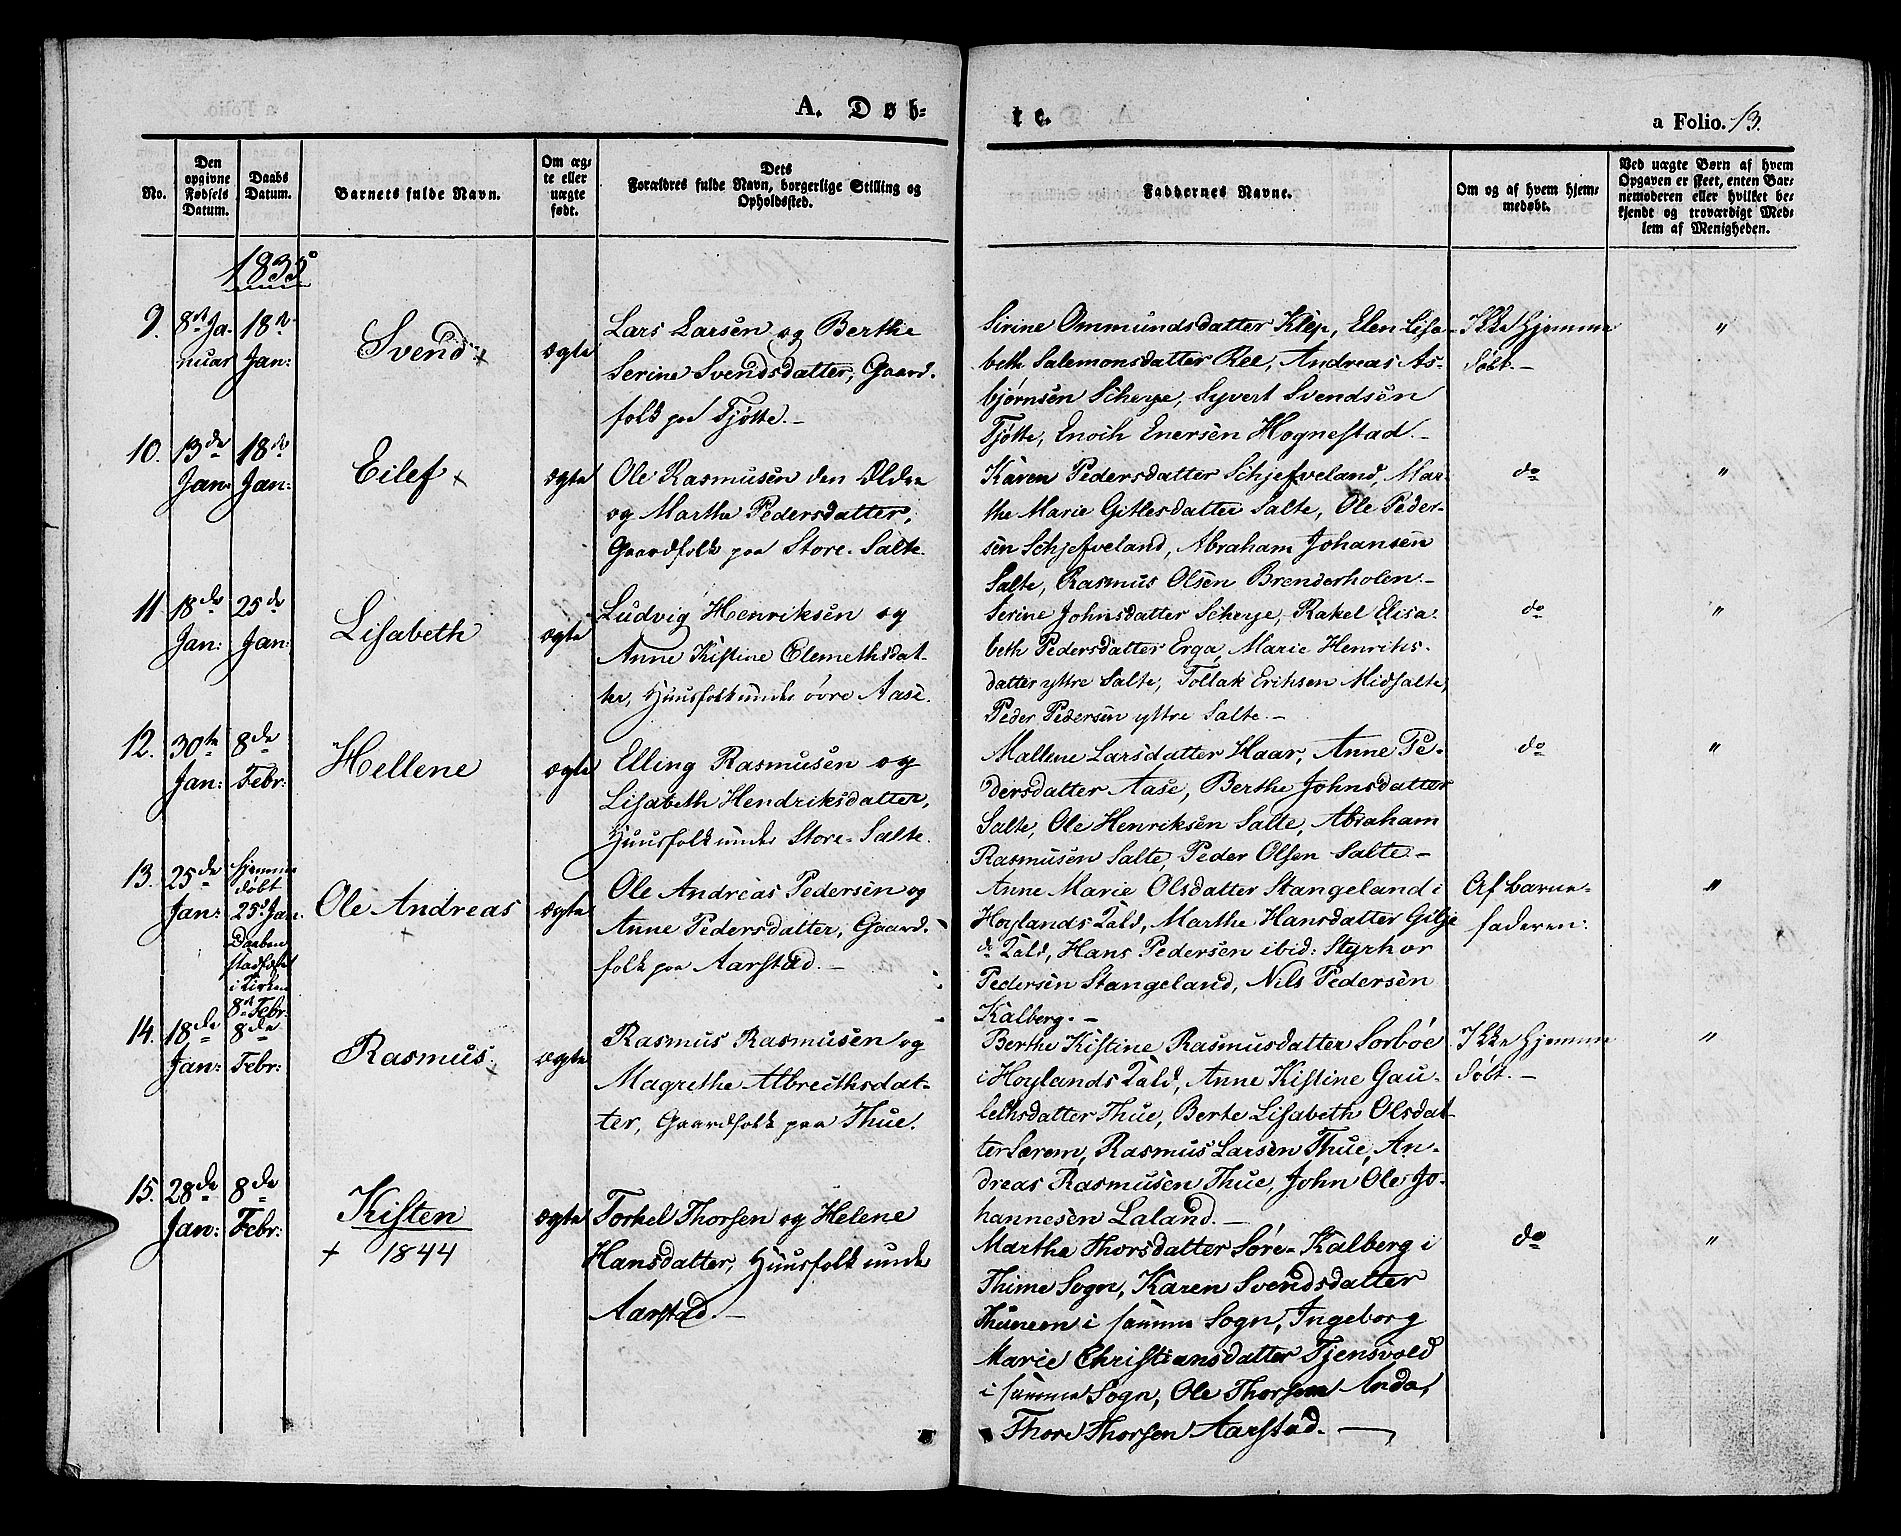 A. Døb-
te.
a Folio. 13.
No.
Den opgivne Fødsels Datum.
Daabs Datum.
Barnets fulde Navn.
Om ægte eller uægte født.
Dets Forældres fulde Navn, borgerlige Stilling og Opholdssted.
Faddernes Navne.
Om og af hvem hjemmedøbt.
Ved uægte Børn af hvem Opgaven er skeet, enten Barnemoderen eller hvilket bekjendt og troværdigt Medlem af Menigheden.
1835
9.
8de Ja-
nuar
18de
Jan:
Svend +
ægte
Lars Larsen og Berthe
Serine Svendsdatter, Gaard-
folk paa Tjøtte.–
Sirine Ommundsdatter Klep, Elen Lisa-
beth Salemonsdatter Ree, Andreas As-
bjørnsen Scherpe, Syvert Svendsen
Tjøtte, Enoch Enersen Hognestad.–
Ikke hjemme
døbt.–
"
10.
13de
Jan:
18de
Jan:
Eilef +
ægte
Ole Rasmusen den Ældre
og Marthe Pedersdatter,
Gaardfolk paa Store-Salte.
Karen Pedersdatter Schjefveland, Mar-
the Marie Gitlesdatter Salte, Ole Peder-
sen Schjefveland, Abraham Johansen
Salte, Rasmus Olsen Brenderholen.–
do
"
11
18de
Jan:
25de
Jan:
Lisabeth
ægte
Ludvig Henriksen og
Anne Kistine Clemethsdat-
ter, Huusfolk under øvre Aase.
Serine Johnsdatter Scherpe, Rakel Elisa-
beth Pedersdatter Erga, Marie Henriks-
datter yttre Salte, Tollak Eriksen Midsalte,
Peder Pedersen yttre Salte.–
do
"
12.
30te
Jan:
8de
Febr:
Hellene
ægte
Elling Rasmusen og
Lisabeth Hendriksdatter,
Huusfolk under Store-Salte.
Mallene Larsdatter Haar, Anne Pe-
dersdatter Aase, Berthe Johnsdatter
Salte, Ole Henriksen Salte, Abraham
Rasmusen Salte, Peder Olsen Salte.–
do
"
13.
25de
Jan:
Hjemme
døbt
25d Jan.
Daaben
stadfæstet
i Kirken
8de Febr.
Ole Andreas
+
ægte
Ole Andreas Pedersen og
Anne Pedersdatter, Gaard-
folk paa Aarstad.–
Anne Marie Olsdatter Stangeland i
Hoylands Qald, Marthe Hansdatter Gilje
do Qald, Hans Pedersen ibid: Styrkor
Pedersen Stangeland, Nils Pedersen
Kalberg.–
Af barne-
faderen:
"
14.
18de
Jan:
8de
Febr:
Rasmus +
ægte
Rasmus Rasmusen og
Magrethe Albreithsdat-
ter, Gaardfolk paa Thue.
Berthe Kistine Rasmusdatter Sorbøe
i Hoylands Qald, Anne Kistine Gau-
lethsdatter Thue, Berte Lisabeth Olsdat-
ter Særem, Rasmus Larsen Thue, An-
dreas Rasmusen Thue, John Ole Jo-
hannesen Laland.–
Ikke hjemme
døbt.–
"
15.
28de
Jan:
8de
Febr:
Kisten
+ 1844
ægte
Torkel Thorsen og Helene
Hansdatter, Huusfolk under
Aarstad.–
Marthe Thorsdatter Søre-Kalberg i
Thime Sogn, Karen Svendsdatter
Thunem i samme Sogn, Ingeborg
Marie Christiansdatter Tjensvold
i samme Sogn, Ole Thorsen Anda,
Thore Thorsen Aarstad.–
do
"